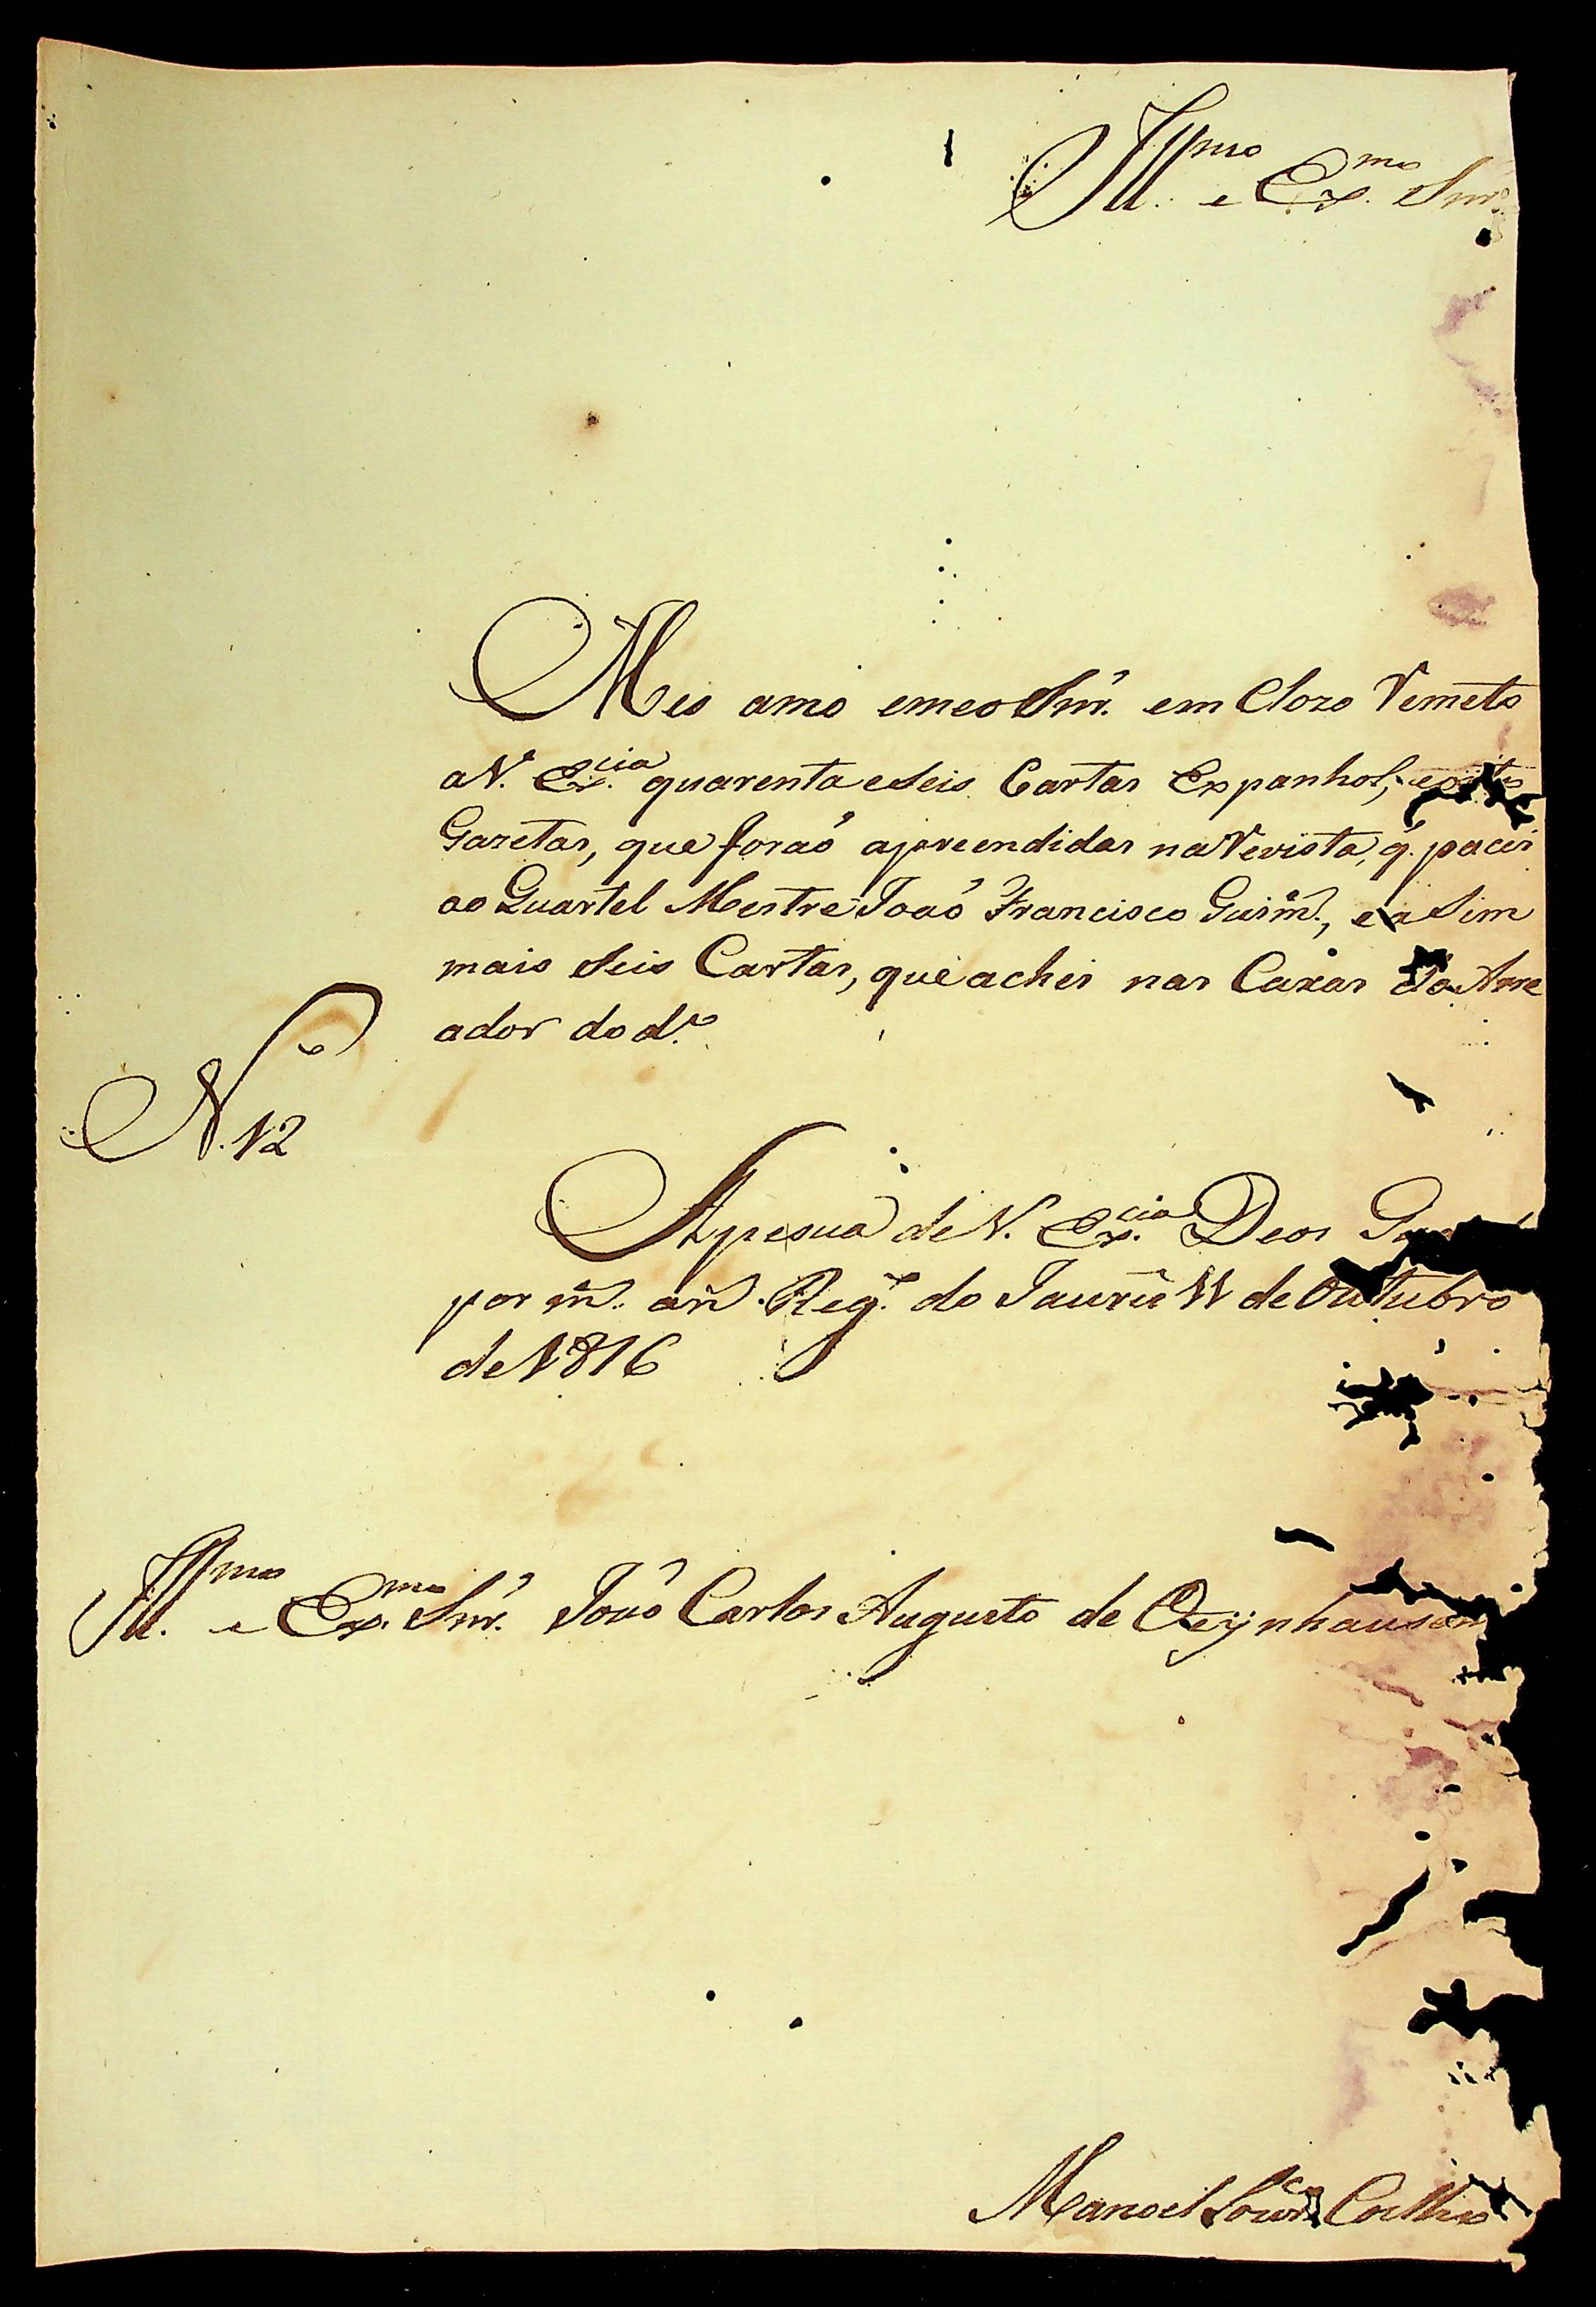 Ill.mo e Ex.mo Snr.
Meo amo emeo Snr. em Clozo Remeto
a V. Ex.cia quarenta e Seis Cartas Expanhol,
Gazetas, que foraó apreendidas na Revista, q. pacei
ao Quartel Mestre Joaó Francisco Guim., e a Sim
mais Seis Cartas, que achei nas Caxas do Arre
ador do d.o
N.o 12
Apesua de V. Ex.cia Deos
por m. an. Reg.to do Jaurú 11 de Outubro
de 1816
Ill.mo e Ex.mo Snr. Joaó Carlos Augusto de Oeÿnhausen
Manoel Coelho